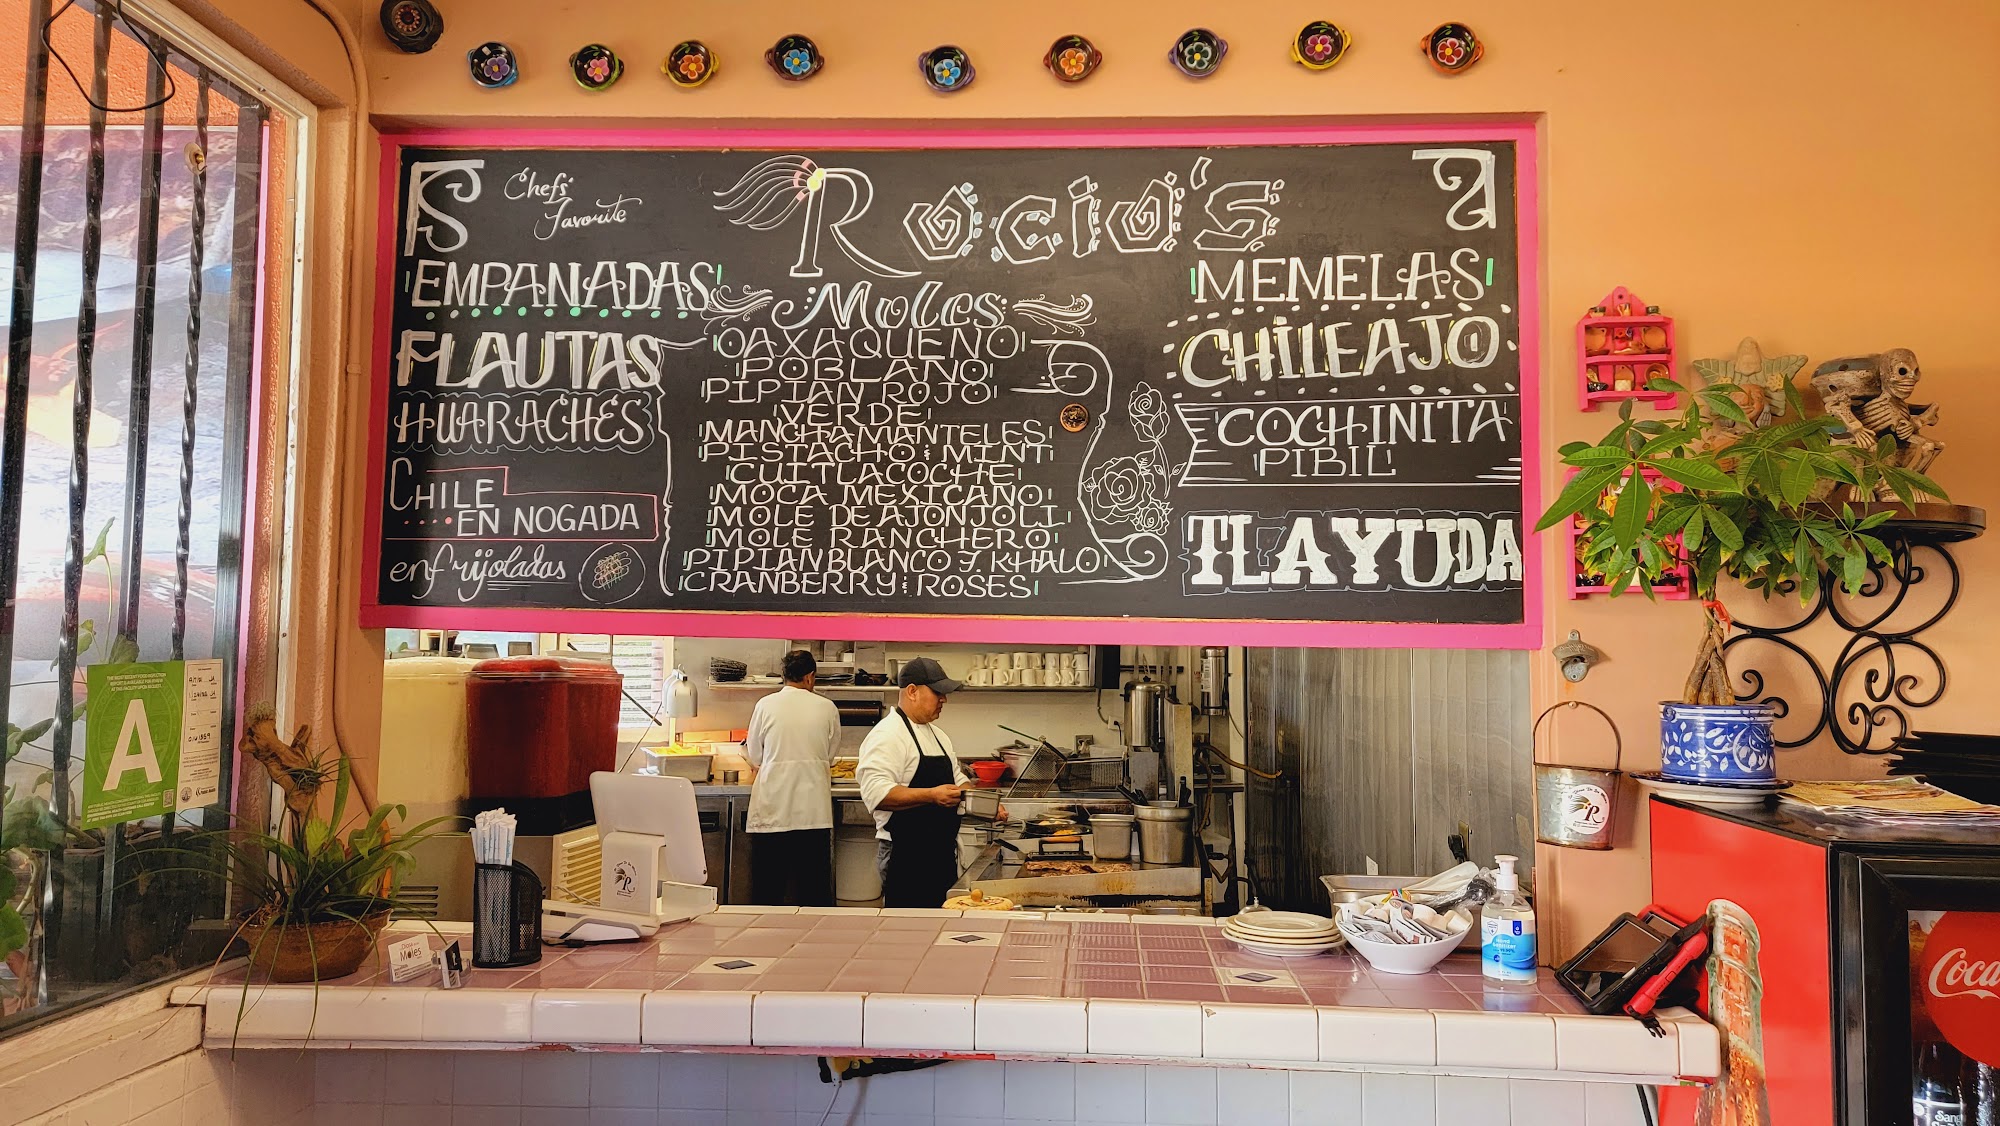 Chefs'
Favorite
Rocio's
EMPANADAS
FLAUTAS
HUARACHES
CHILE
EN NOGADA
enfrijoladas
Moles
OAXAQUEÑO
POBLANO
PIPIAN ROJO
VERDE
MANCHAMANTELES
PISTACHO & MINT
CUITLACOCHE
MOCA MEXICANO
MOLE DE AJONJOLI
MOLE RANCHERO
PIPIAN BLANCO F. KHALO
CRANBERRY & ROSES
MEMELAS
CHILEAJO
COCHINITA
PIBIL
TLAYUDA
A
R
Moles
R
Coca